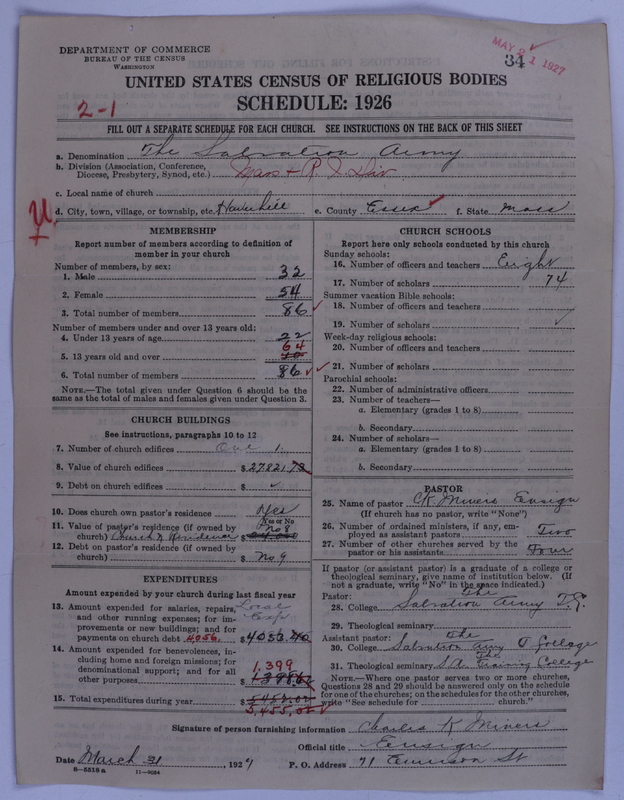 DEPARTMENT OF COMMERCE
BUREAU OF THE CENSUS
WASHINGTON
MAY 21 1927
34
UNITED STATES CENSUS OF RELIGIOUS BODIES
SCHEDULE: 1926
2-1
FILL OUT A SEPARATE SCHEDULE FOR EACH CHURCH. SEE INSTRUCTIONS ON THE BACK OF THIS SHEET
a. Denomination The Salvation Army
b. Division (Association, Conference, Diocese, Presbytery, Synod, etc.) Mass + R I Div
c. Local name of church
U
d. City, town, village, or township, etc. Haverhill e. County Essex f. State Mass
MEMBERSHIP
Report number of members according to definition of
member in your church
Number of members, by sex:
1. Male 32
2. Female 54
3. Total number of members 86
Number of members under and over 13 years old:
4. Under 13 years of age 22
5. 13 years old and over 64
6. Total number of members 86
NOTE.—The total given under Question 6 should be the
same as the total of males and females given under Question 3.
CHURCH BUILDINGS
See instructions, paragraphs 10 to 12
7. Number of church edifices One 1
8. Value of church edifices $27821.73
9. Debt on church edifices $
10. Does church own pastor's residence Yes
Yes or No
11. Value of pastor's residence (if owned by
church) Church & Residence $ No 8
12. Debt on pastor's residence (if owned by
church) $ No 9
EXPENDITURES
Amount expended by your church during last fiscal year
13. Amount expended for salaries, repairs, Local
and other running expenses; for im- Exp
provements or new buildings; and for
payments on church debt 4056. $4055.40
14. Amount expended for benevolences, in-
cluding home and foreign missions; for
denominational support; and for all 1.399
other purposes $
15. Total expenditures during year $
5,455.00
CHURCH SCHOOLS
Report here only schools conducted by this church
Sunday schools:
16. Number of officers and teachers Eight
17. Number of scholars 74
Summer vacation Bible schools:
18. Number of officers and teachers
19. Number of scholars
Week-day religious schools:
20. Number of officers and teachers
21. Number of scholars
Parochial schools:
22. Number of administrative officers
23. Number of teachers—
a. Elementary (grades 1 to 8)
b. Secondary
24. Number of scholars—
a. Elementary (grades 1 to 8)
b. Secondary
PASTOR
25. Name of pastor CK Miners Ensign
(If church has no pastor, write "None")
26. Number of ordained ministers, if any, em-
ployed as assistant pastors Two
27. Number of other churches served by the
pastor or his assistants Four
If pastor (or assistant pastor) is a graduate of a college or
theological seminary, give name of institution below. (If
not a graduate, write "No" in the space indicated.)
Pastor: The
28. College Salvation Army
29. Theological seminary
Assistant pastor: The
30. College Salvation Army T College
31. Theological seminary S.A. Training College
NOTE.—Where one pastor serves two or more churches,
Questions 28 and 29 should be answered only on the schedule
for one of the churches; on the schedules for the other churches,
write "See schedule for church."
Signature of person furnishing information Charles K Miners
Official title Ensign
Date March 31 1927 P. O. Address 71 Emerson St
8—5518 a 11—9054